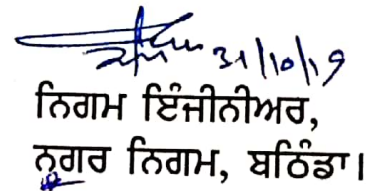 31/10/19
ਨਿਗਮ ਇੰਜੀਨੀਅਰ,
ਨਗਰ ਨਿਗਮ, ਬਠਿੰਡਾ।